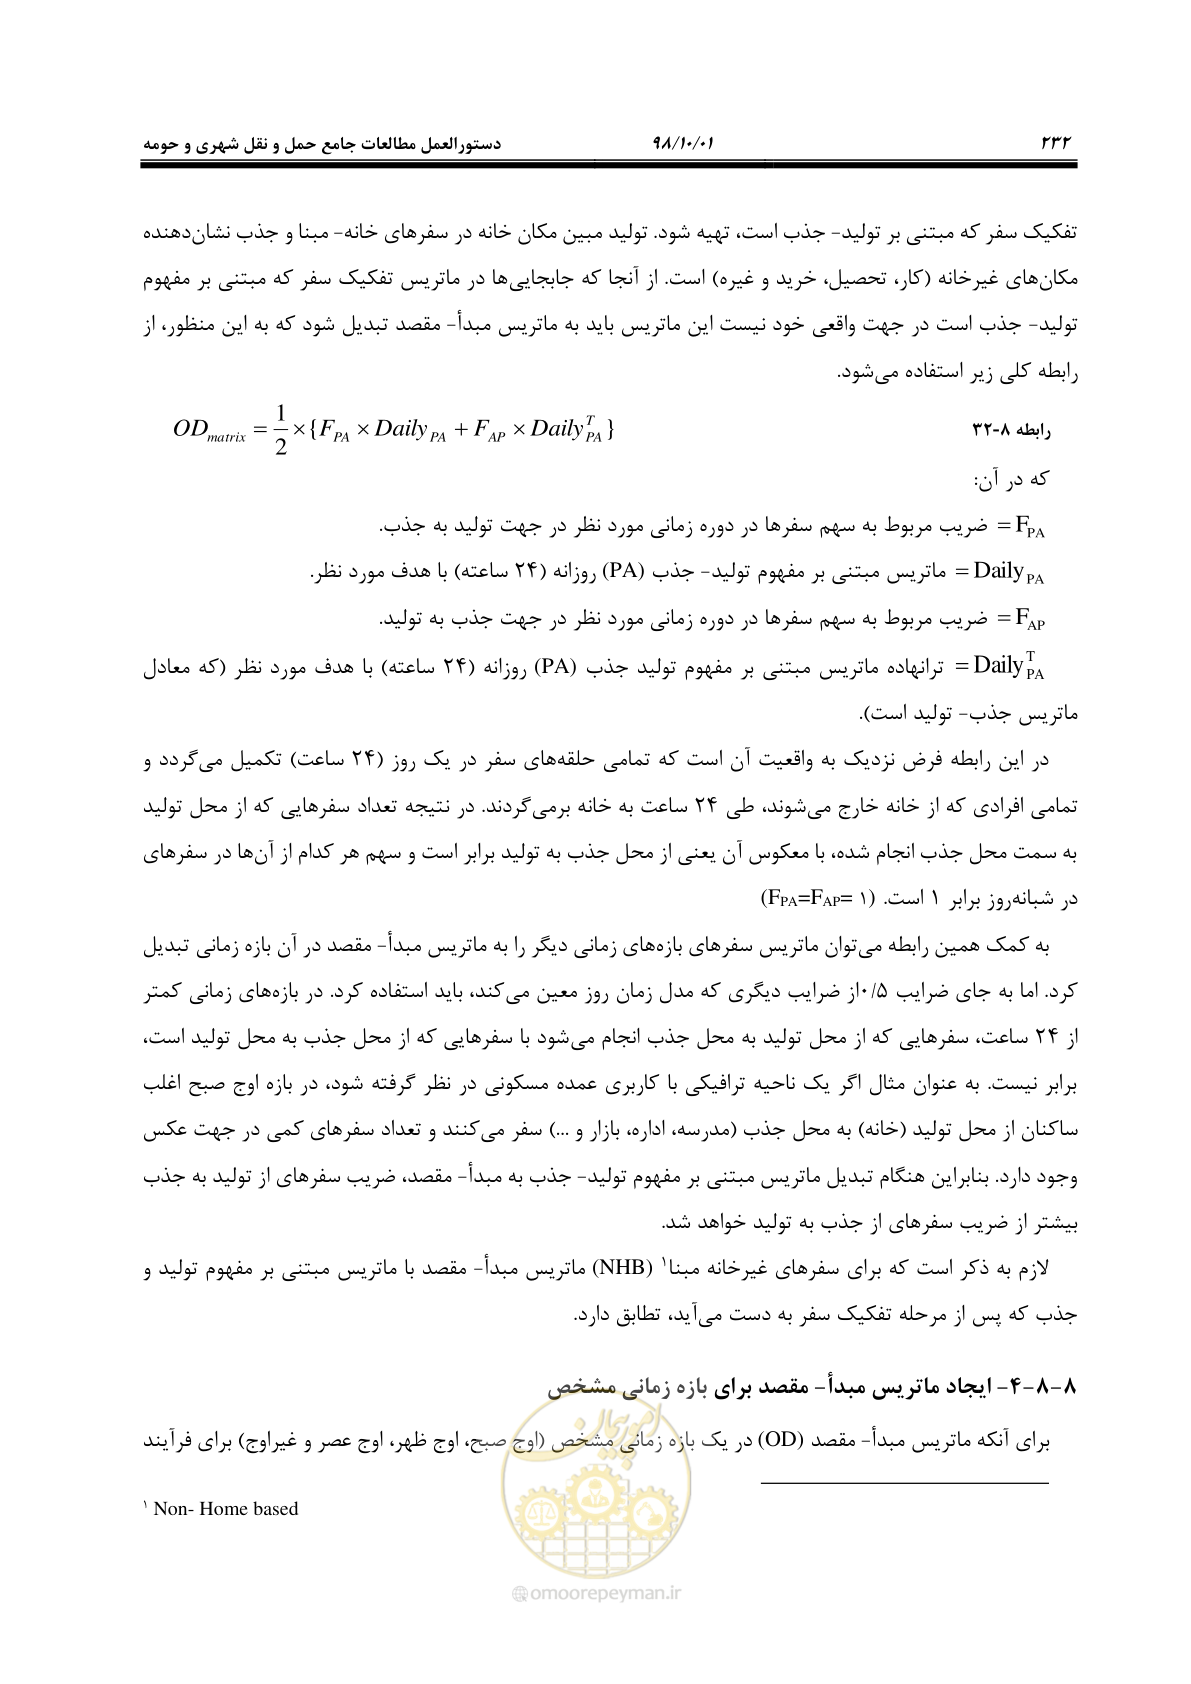 ۲۳۲ ۹۸/۱۰/۰۱ دستورالعمل مطالعات جامع حمل و نقل شهری و حومه
تفکیک سفر که مبتنی بر تولید- جذب است، تهیه شود. تولید مبین مکان خانه در سفرهای خانه- مبنا و جذب نشان‌دهنده
مکان‌های غیرخانه (کار، تحصیل، خرید و غیره) است. از آنجا که جابجایی‌ها در ماتریس تفکیک سفر که مبتنی بر مفهوم
تولید- جذب است در جهت واقعی خود نیست این ماتریس باید به ماتریس مبدأ- مقصد تبدیل شود که به این منظور، از
رابطه کلی زیر استفاده می‌شود.
رابطه ۸-۳۲ $OD_{matrix} = \frac{1}{2} \times \{F_{PA} \times Daily_{PA} + F_{AP} \times Daily_{PA}^{T}\}$
که در آن:
F_{PA} = ضریب مربوط به سهم سفرها در دوره زمانی مورد نظر در جهت تولید به جذب.
Daily_{PA} = ماتریس مبتنی بر مفهوم تولید- جذب (PA) روزانه (۲۴ ساعته) با هدف مورد نظر.
F_{AP} = ضریب مربوط به سهم سفرها در دوره زمانی مورد نظر در جهت جذب به تولید.
Daily_{PA}^{T} = ترانهاده ماتریس مبتنی بر مفهوم تولید جذب (PA) روزانه (۲۴ ساعته) با هدف مورد نظر (که معادل
ماتریس جذب- تولید است).
در این رابطه فرض نزدیک به واقعیت آن است که تمامی حلقه‌های سفر در یک روز (۲۴ ساعت) تکمیل می‌گردد و
تمامی افرادی که از خانه خارج می‌شوند، طی ۲۴ ساعت به خانه برمی‌گردند. در نتیجه تعداد سفرهایی که از محل تولید
به سمت محل جذب انجام شده، با معکوس آن یعنی از محل جذب به تولید برابر است و سهم هر کدام از آن‌ها در سفرهای
در شبانه‌روز برابر ۱ است. (F_{PA}=F_{AP}= ۱)
به کمک همین رابطه می‌توان ماتریس سفرهای بازه‌های زمانی دیگر را به ماتریس مبدأ- مقصد در آن بازه زمانی تبدیل
کرد. اما به جای ضرایب ۰/۵از ضرایب دیگری که مدل زمان روز معین می‌کند، باید استفاده کرد. در بازه‌های زمانی کمتر
از ۲۴ ساعت، سفرهایی که از محل تولید به محل جذب انجام می‌شود با سفرهایی که از محل جذب به محل تولید است،
برابر نیست. به عنوان مثال اگر یک ناحیه ترافیکی با کاربری عمده مسکونی در نظر گرفته شود، در بازه اوج صبح اغلب
ساکنان از محل تولید (خانه) به محل جذب (مدرسه، اداره، بازار و ...) سفر می‌کنند و تعداد سفرهای کمی در جهت عکس
وجود دارد. بنابراین هنگام تبدیل ماتریس مبتنی بر مفهوم تولید- جذب به مبدأ- مقصد، ضریب سفرهای از تولید به جذب
بیشتر از ضریب سفرهای از جذب به تولید خواهد شد.
لازم به ذکر است که برای سفرهای غیرخانه مبنا۱ (NHB) ماتریس مبدأ- مقصد با ماتریس مبتنی بر مفهوم تولید و
جذب که پس از مرحله تفکیک سفر به دست می‌آید، تطابق دارد.
۸-۸-۴- ایجاد ماتریس مبدأ- مقصد برای بازه زمانی مشخص
برای آنکه ماتریس مبدأ- مقصد (OD) در یک بازه زمانی مشخص (اوج صبح، اوج ظهر، اوج عصر و غیراوج) برای فرآیند
۱ Non- Home based
امور پیمان
@omoorepeyman.ir